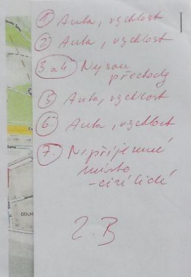 1 Auta, rychlost
2 Auta, rychlost
3 a 4 Nejsou
přechody
5 Auta, rychlost
6 Auta, rychlost
7 Nepříjemné
místo
- cizí lidé
2.B